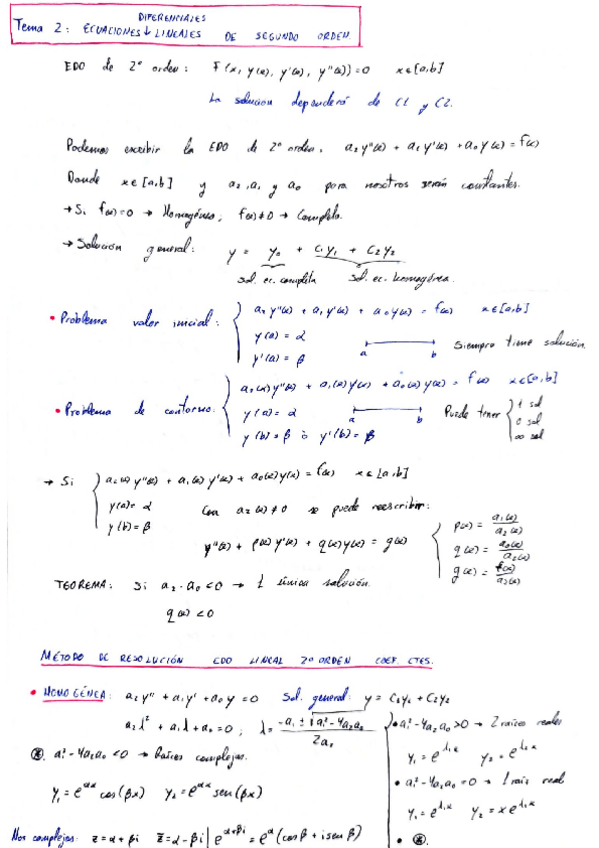 DIFERENCIALES
Tema 2: ECUACIONES ↓ LINEALES DE SEGUNDO ORDEN
EDO de 2º orden: F(x, y(x), y'(x), y''(x)) = 0 x∈[a,b]
La solucion dependerá de C1 y C2.
Podemos escribir la EDO de 2º orden, a₂y''(x) + a₁y'(x) + a₀y(x) = f(x)
Donde x∈[a,b] y a₂, a₁ y a₀ para nosotros serán constantes.
→ Si f(x)=0 → Homogénea; f(x)≠0 → Completa.
→ Solución general: y = y₀ + C₁y₁ + C₂y₂
sol. ec. completa sol. ec. homogénea.
• Problema valor inicial: { a₂y''(x) + a₁y'(x) + a₀y(x) = f(x) x∈[a,b]
y(a) = α
y'(a) = β
a b Siempre tiene solución.
• Problema de contorno: { a₂(x)y''(x) + a₁(x)y'(x) + a₀(x)y(x) = f(x) x∈[a,b]
y(a) = α a b Puede tener { 1 sol
0 sol
∞ sol
y(b) = β ò y'(b) = β
→ Si { a₂(x)y''(x) + a₁(x)y'(x) + a₀(x)y(x) = f(x) x∈[a,b]
y(a) = α
y(b) = β
Con a₂(x)≠0 se puede reescribir:
y''(x) + p(x)y'(x) + q(x)y(x) = g(x)
{ p(x) = a₁(x)/a₂(x)
q(x) = a₀(x)/a₂(x)
g(x) = f(x)/a₂(x)
TEOREMA: Si a₂·a₀<0 → 1 única solución.
q(x)<0
MÉTODO DE RESOLUCIÓN EDO LINEAL 2º ORDEN COEF. CTES.
• HOMOGÉNEA: a₂y'' + a₁y' + a₀y = 0 Sol. general: y = C₁y₁ + C₂y₂
a₂λ² + a₁λ + a₀ = 0; λ = (-a₁ ± √(a₁² - 4a₂a₀))/2a₂
• a₁² - 4a₂a₀ > 0 → 2 raíces reales
y₁ = e^λ₁x y₂ = e^λ₂x
• a₁² - 4a₂a₀ = 0 → 1 raíz real
y₁ = e^λ₁x y₂ = xe^λ₁x
• ⊛.
⊛. a₁² - 4a₂a₀ < 0 → Raíces complejas.
y₁ = e^αx cos(βx) y₂ = e^αx sen(βx)
Nos complejos: z = α + βi z̄ = α - βi | e^α+βi = e^α(cosβ + isenβ)